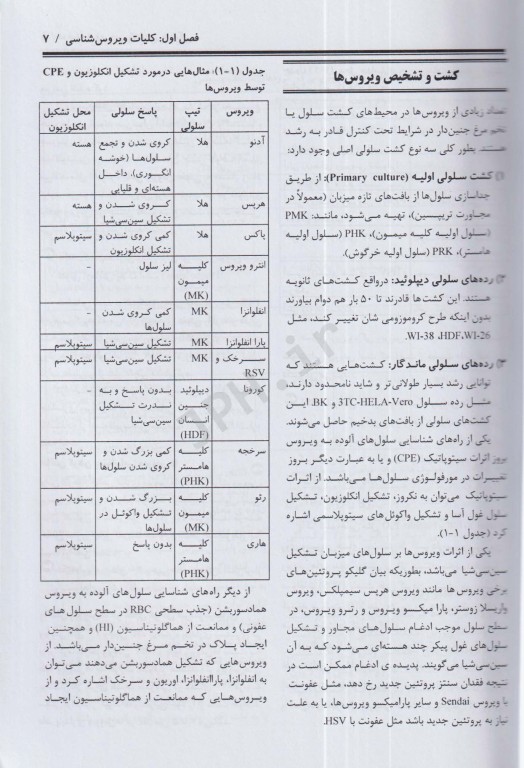 فصل اول: کلیات ویروس‌شناسی / ۷
کشت و تشخیص ویروس‌ها
تعداد زیادی از ویروس‌ها در محیط‌های کشت سلول یا
تخم مرغ جنین‌دار در شرایط تحت کنترل قادر به رشد
هستند بطور کلی سه نوع کشت سلولی اصلی وجود دارد:
۱) کشت سلولی اولیه (Primary culture): از طریق
جداسازی سلول‌ها از بافت‌های تازه میزبان (معمولاً در
مجاورت تریپسین)، تهیه می‌شود، مانند: PMK
(سلول اولیه کلیه میمون)، PHK (سلول اولیه
هامستر)، PRK (سلول اولیه خرگوش).
۲) رده‌های سلولی دیپلوئید: درواقع کشت‌های ثانویه
هستند. این کشت‌ها قادرند تا ۵۰ بار هم دوام بیاورند
بدون اینکه طرح کروموزومی شان تغییر کند، مثل
WI-38 ،HDF،WI-26.
۳) رده‌های سلولی ماندگار: کشت‌هایی هستند که
توانایی رشد بسیار طولانی‌تر و شاید نامحدود دارند،
مثل رده سلول 3TC-HELA-Vero و BK. این
کشت‌های سلولی از بافت‌های بدخیم حاصل می‌شوند.
یکی از راه‌های شناسایی سلول‌های آلوده به ویروس
بروز اثرات سیتوپاتیک (CPE) و یا به عبارت دیگر بروز
تغییرات در مورفولوژی سلول‌ها می‌باشد. از اثرات
سیتوپاتیک می‌توان به نکروز، تشکیل انکلوزیون، تشکیل
سلول غول آسا و تشکیل واکوئل‌های سیتوپلاسمی اشاره
کرد (جدول ۱-۱).
یکی از اثرات ویروس‌ها بر سلول‌های میزبان تشکیل
سین‌سی‌شیا می‌باشد، بطوریکه بیان گلیکو پروتئین‌های
برخی ویروس‌ها مانند ویروس هرپس سیمپلکس، ویروس
واریسلا زوستر، پارا میکسو ویروس و رترو ویروس، در
سطح سلول موجب ادغام سلول‌های مجاور و تشکیل
سلول‌های غول پیکر چند هسته‌ای می‌شود که به آن
سین‌سی‌شیا می‌گویند. پدیده‌ ی ادغام ممکن است در
نتیجه فقدان سنتز پروتئین جدید رخ دهد، مثل عفونت
با ویروس Sendai و سایر پارامیکسو ویروس‌ها، یا به علت
نیاز به پروتئین جدید باشد مثل عفونت با HSV.
جدول (۱-۱): مثال‌هایی درمورد تشکیل انکلوزیون و CPE
توسط ویروس‌ها
ویروس | تیپ سلولی | پاسخ سلولی | محل تشکیل انکلوزیون
آدنو | هلا | کروی شدن و تجمع سلول‌ها (خوشه انگوری). داخل هسته‌ای و قلیایی | هسته
هرپس | هلا | کروی شدن و تشکیل سین‌سی‌شیا | هسته
پاکس | هلا | کمی کروی شدن و تشکیل انکلوزیون | سیتوپلاسم
انترو ویروس | کلیه میمون (MK) | لیز سلول | –
انفلوانزا | MK | کمی کروی شدن سلول‌ها | –
پارا انفلوانزا | MK | تشکیل سین‌سی‌شیا | سیتوپلاسم
سرخک و RSV | MK | تشکیل سین‌سی‌شیا | سیتوپلاسم
کورونا | دیپلوئید جنین انسان (HDF) | بدون پاسخ و به ندرت تشکیل سین‌سی‌شیا | –
سرخجه | کلیه هامستر (PHK) | کمی بزرگ شدن و کروی شدن سلول‌ها | سیتوپلاسم
رئو | کلیه میمون (MK) | بزرگ شدن و تشکیل واکوئل در سلول‌ها | سیتوپلاسم
هاری | کلیه هامستر (PHK) | بدون پاسخ | سیتوپلاسم
از دیگر راه‌های شناسایی سلول‌های آلوده به ویروس
همادسوربشن (جذب سطحی RBC در سطح سلول های
عفونی) و ممانعت از هماگلوتیناسیون (HI) و همچنین
ایجاد پلاک در تخم مرغ جنین‌دار می‌باشد. از
ویروس‌هایی که تشکیل همادسوربشن می‌دهند می‌توان
به انفلوانزا، پاراانفلوانزا، اوریون و سرخک اشاره کرد و از
ویروس‌هایی که ممانعت از هماگلوتیناسیون ایجاد